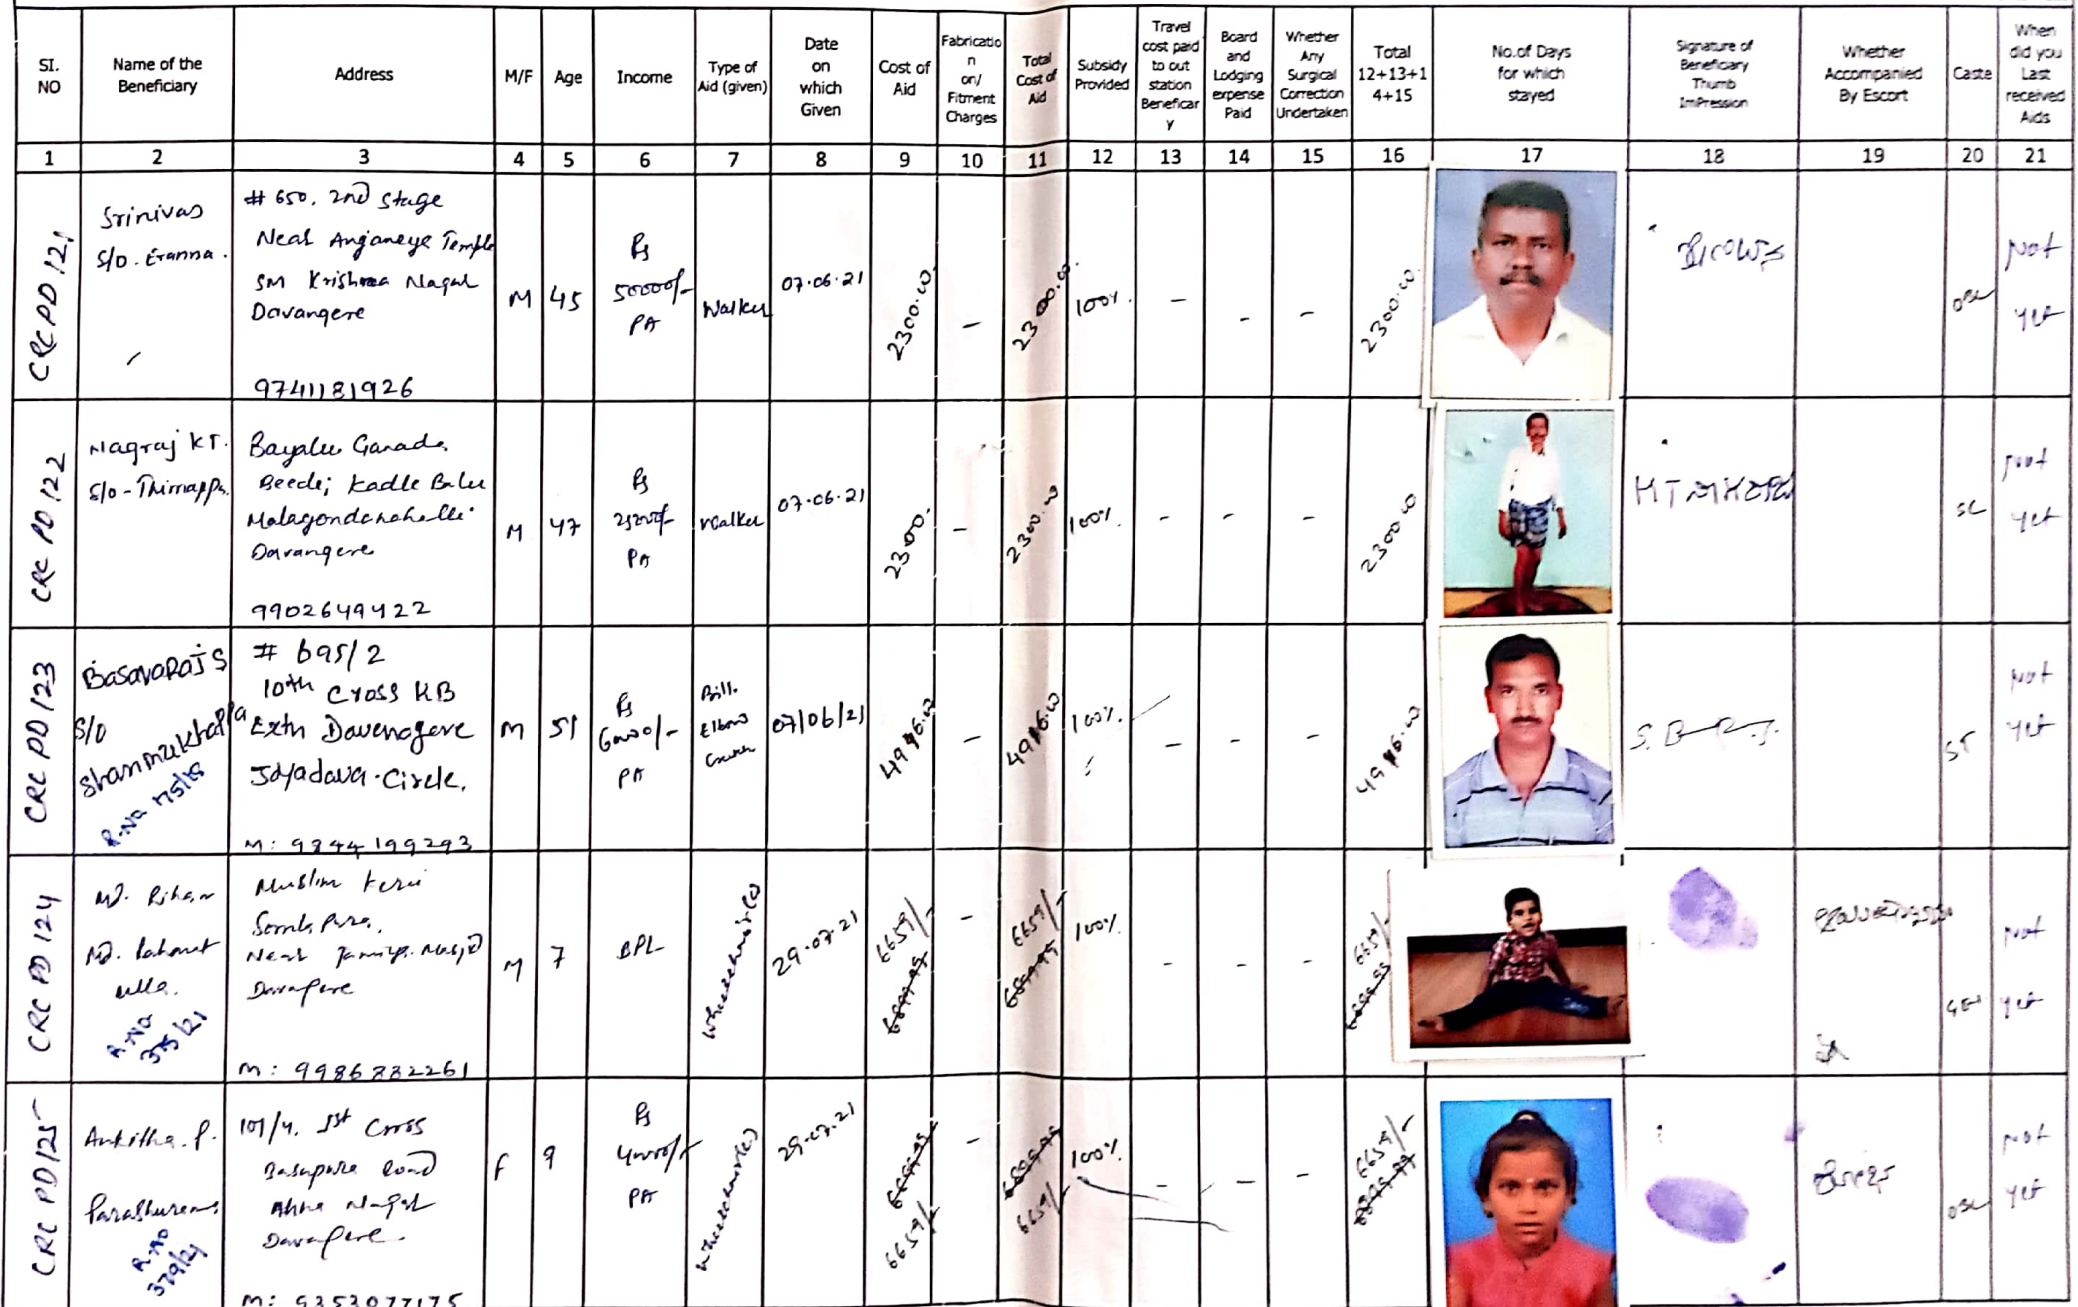 SI. NO
Name of the Beneficiary
Address
M/F
Age
Income
Type of Aid (given)
Date on which Given
Cost of Aid
Fabricatio n on/ Fitment Charges
Total Cost of Aid
Subsidy Provided
Travel cost paid to out station Beneficar y
Board and Lodging expense Paid
Whether Any Surgical Correction Undertaken
Total 12+13+1 4+15
No.of Days for which stayed
Signature of Beneficiary Thumb ImPression
Whether Accompanied By Escort
Caste
When did you Last received Aids
1 2 3 4 5 6 7 8 9 10 11 12 13 14 15 16 17 18 19 20 21
CRC PD 121
Srinivas
S/o. Eranna.
# 650. 2nd Stage
Near Anjaneya Temple
SM Krishna Nagar
Davangere
9741181926
M
45
Rs
50000/-
PA
Walker
07.06.21
2300.00
-
2300.00
100%.
-
-
-
2300.00
Not
yet
CRC PD 122
Nagraj KT.
S/o - Thimappa.
Beedi; Kadle Balu
Davangere
9902649422
M
47
Rs
PA
Walker
07.06.21
2300.
-
2300.00
100%.
-
-
-
2300.00
SC
Not
yet
CRC PD 123
Basavaraj S
S/o
Shanmukhappa
R.No
# 695/2
10th Cross KB
Extn Davenagere
Jayadava Circle.
M: 9844199293
M
51
Rs
PA
Elbow
07/06/21
-
100%.
-
-
-
S. B
ST
Not
yet
CRC PD 124
Md. Rihan
Md. Rahamt
ulla.
R.No
375/21
Muslim Keri
Near Jamiya Masjid
Davagere
M: 9986882261
M
7
BPL
Wheelchair(c)
29.07.21
6659/-
-
6659/-
100%
-
-
-
6659/-
GEN
Not
yet
CRC PD 125
Ankitha. P.
Parashurama
R.No
379/21
101/4. 1st Cross
Basapura Road
Nagar
Davagere.
M: 9353077175
F
9
Rs
PA
Wheelchair(c)
29.07.21
6659/-
-
6659/-
100%
-
-
-
6659/-
Not
yet